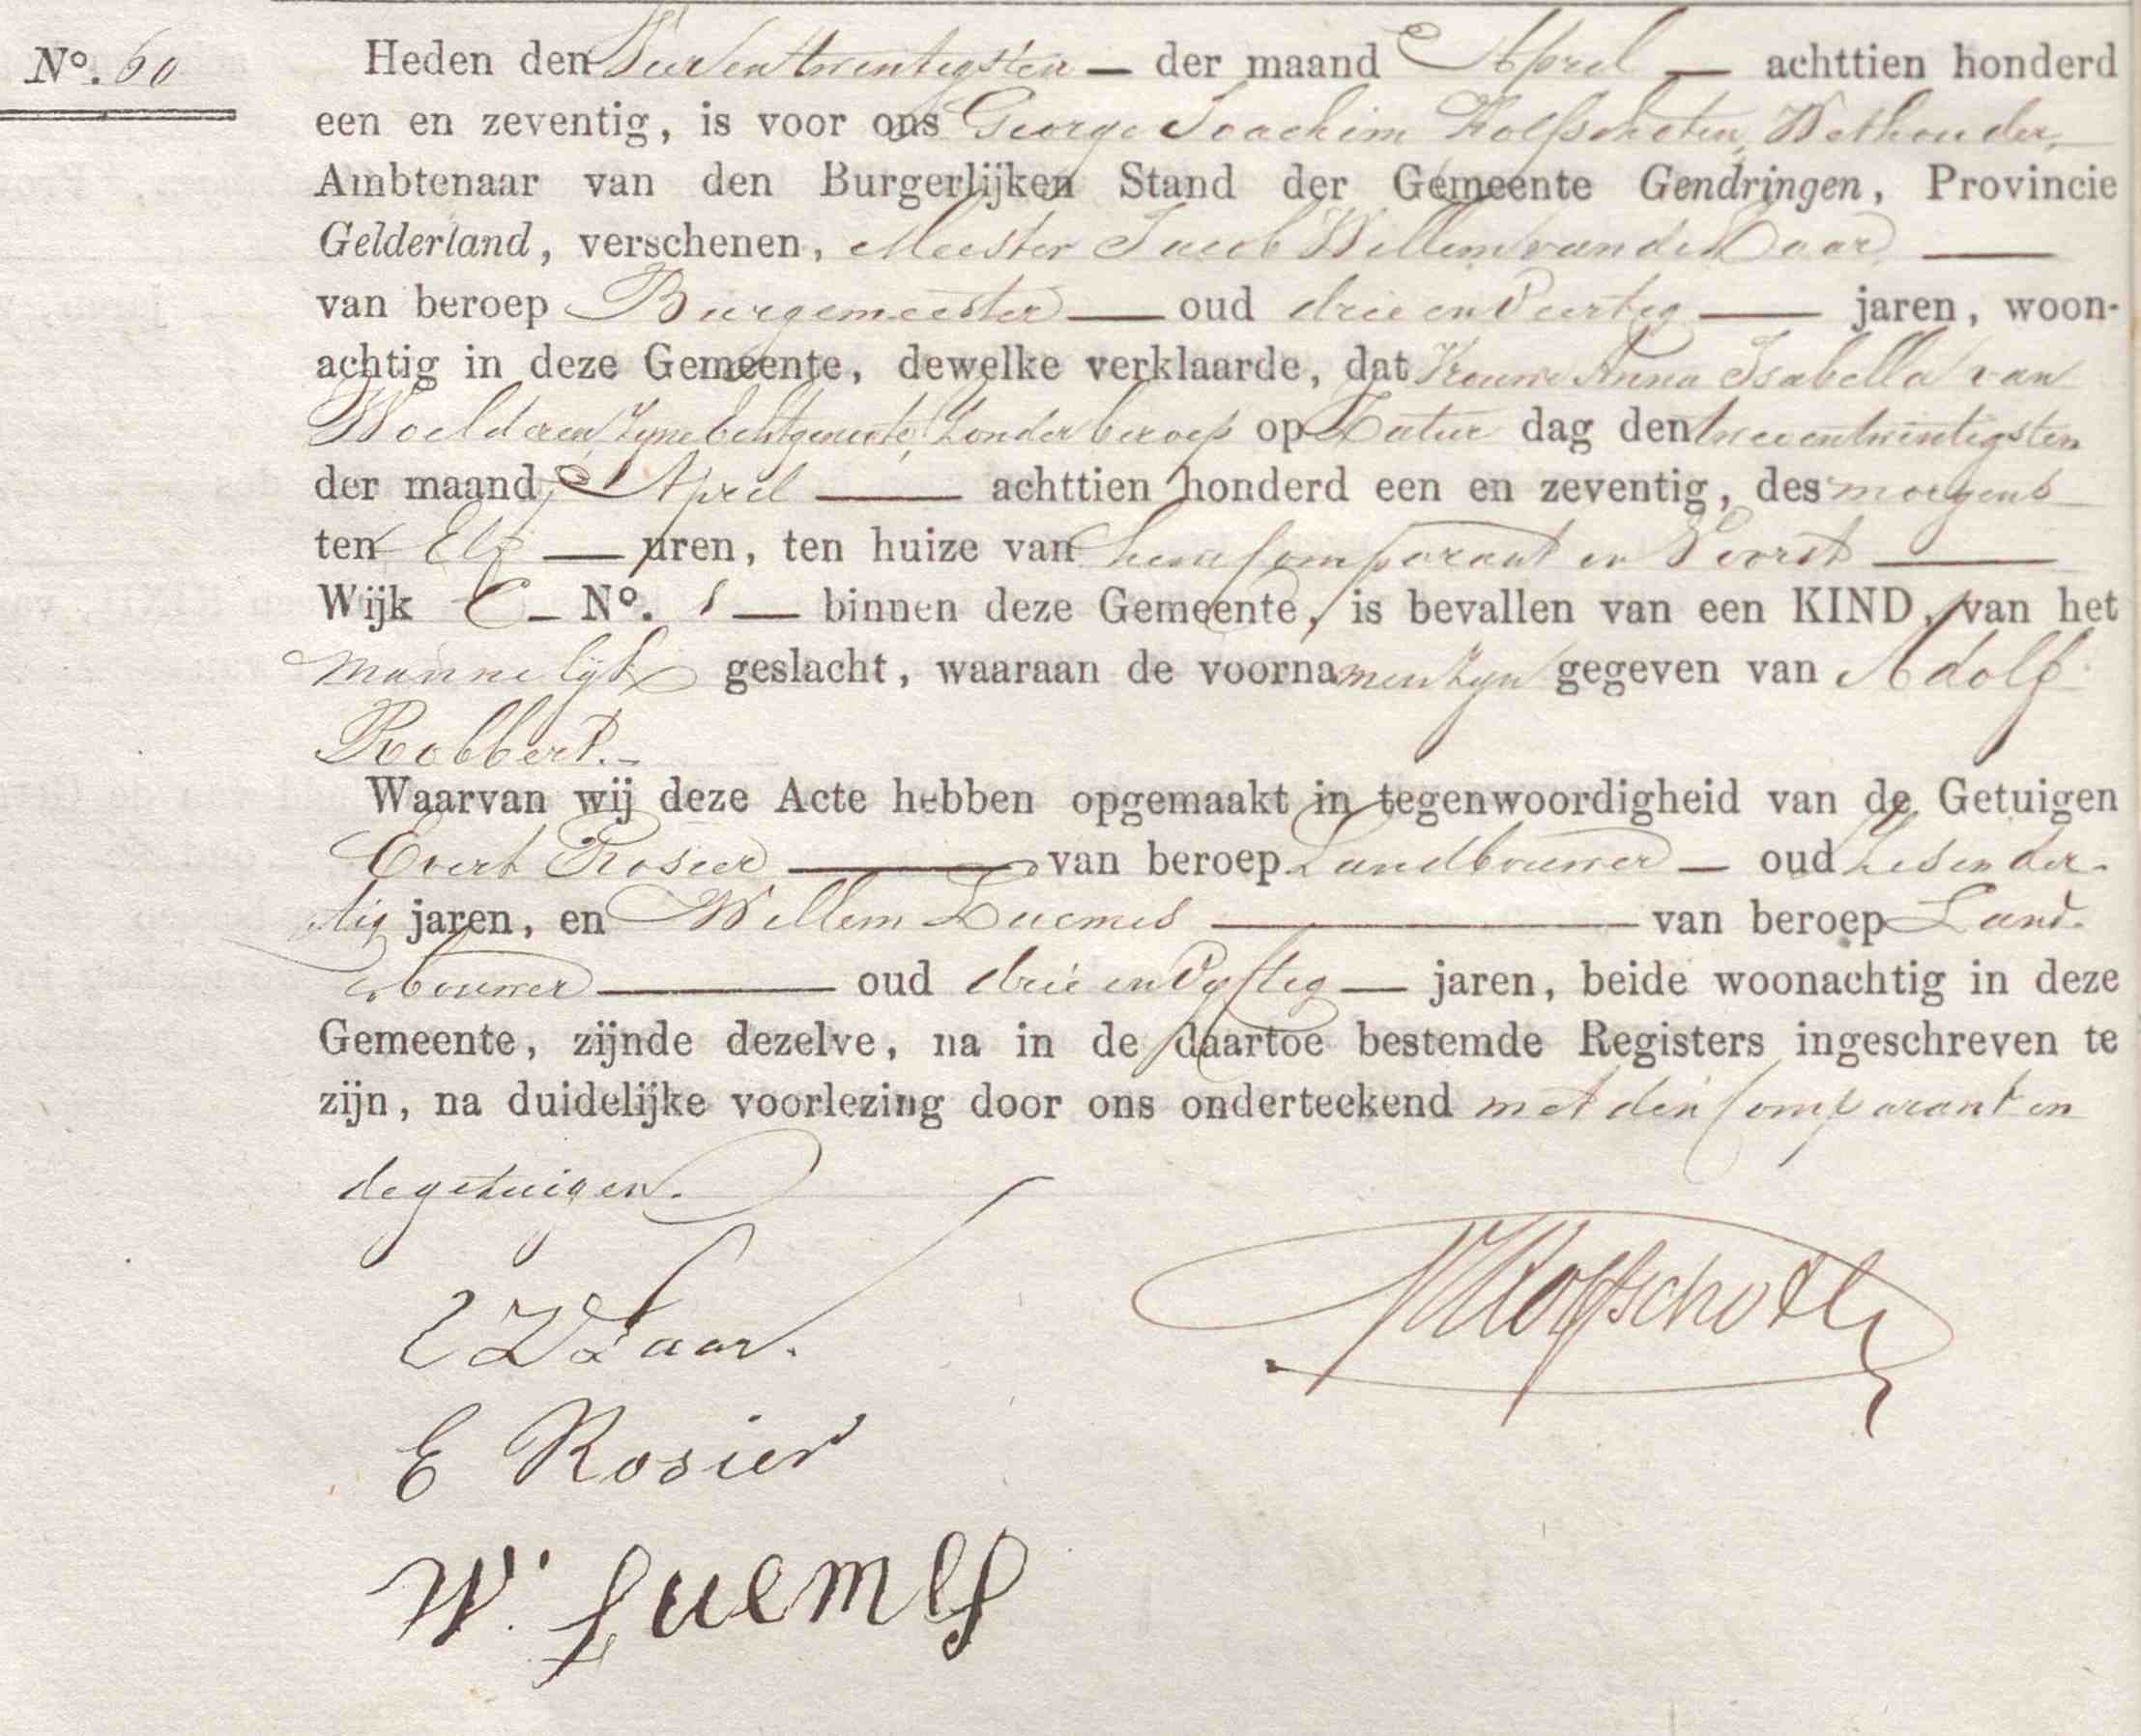 Nº. 60
Heden den Vierentwintigsten — der maand April — achttien honderd
een en zeventig, is voor ons George Joachim Rolfschoten, Wethouder,
Ambtenaar van den Burgerlijken Stand der Gemeente Gendringen, Provincie
Gelderland, verschenen, Meester Jacob Willem van de Laar —
van beroep Burgemeester — oud drie en Veertig — jaren, woon-
achtig in deze Gemeente, dewelke verklaarde, dat Vrouwe Anna Isabella van
Woelderen, zijne Echtgenoote, zonder beroep op Zatur dag den tweeentwintigsten
der maand April — achttien honderd een en zeventig, des morgens
ten Elf — uren, ten huize van hem Comparant in Voorst —
Wijk C — Nº. 1 — binnen deze Gemeente, is bevallen van een KIND, van het
Mannelijk geslacht, waaraan de voornamen zijn gegeven van Adolf
Robbert. —
Waarvan wij deze Acte hebben opgemaakt in tegenwoordigheid van de Getuigen
Evert Rosier — van beroep Landbouwer — oud Zes en der-
tig jaren, en Willem Luemes — van beroep Land-
bouwer — oud drie en Vyftig — jaren, beide woonachtig in deze
Gemeente, zijnde dezelve, na in de daartoe bestemde Registers ingeschreven te
zijn, na duidelijke voorlezing door ons onderteekend met den Comparant en
de getuigen.
Laar.
Rolfschoten
E Rosier
W. Luemes